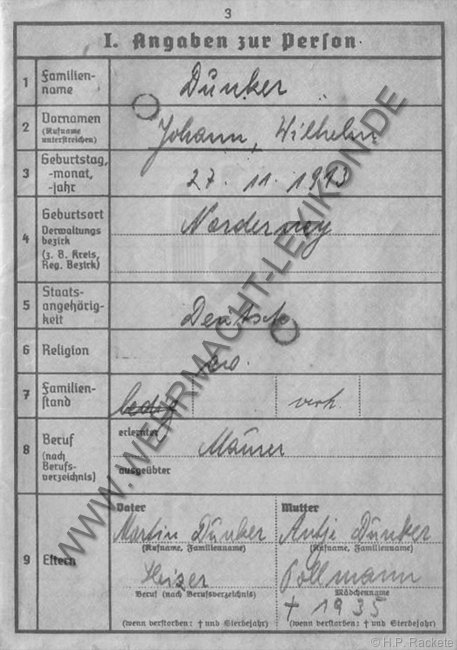 3
I. Angaben zur Person
1 Familien-
name
Dunker
2 Vornamen
(Rufname
unterstreichen)
Johann, Wilhelm
3 Geburtstag,
-monat,
-jahr
27. 11. 1913
4 Geburtsort
Verwaltungs
bezirk
(z. B. Kreis,
Reg. Bezirk)
Norderney
5 Staats-
angehörig-
keit
Deutsch
6 Religion
7 Familien-
stand
led. verh.
8 Beruf
(nach
Berufs-
verzeichnis)
erlernter
Maurer
ausgeübter
9 Eltern
Vater Mutter
Martin Dunker Antje Dunker
(Rufname, Familienname) (Rufname, Familienname)
Heizer Pollmann
Beruf (nach Berufsverzeichnis) Mädchenname
† 1935
(wenn verstorben: † und Sterbejahr) (wenn verstorben: † und Sterbejahr)
WWW.WEHRMACHT-LEXIKON.DE
© H.P. Rackete